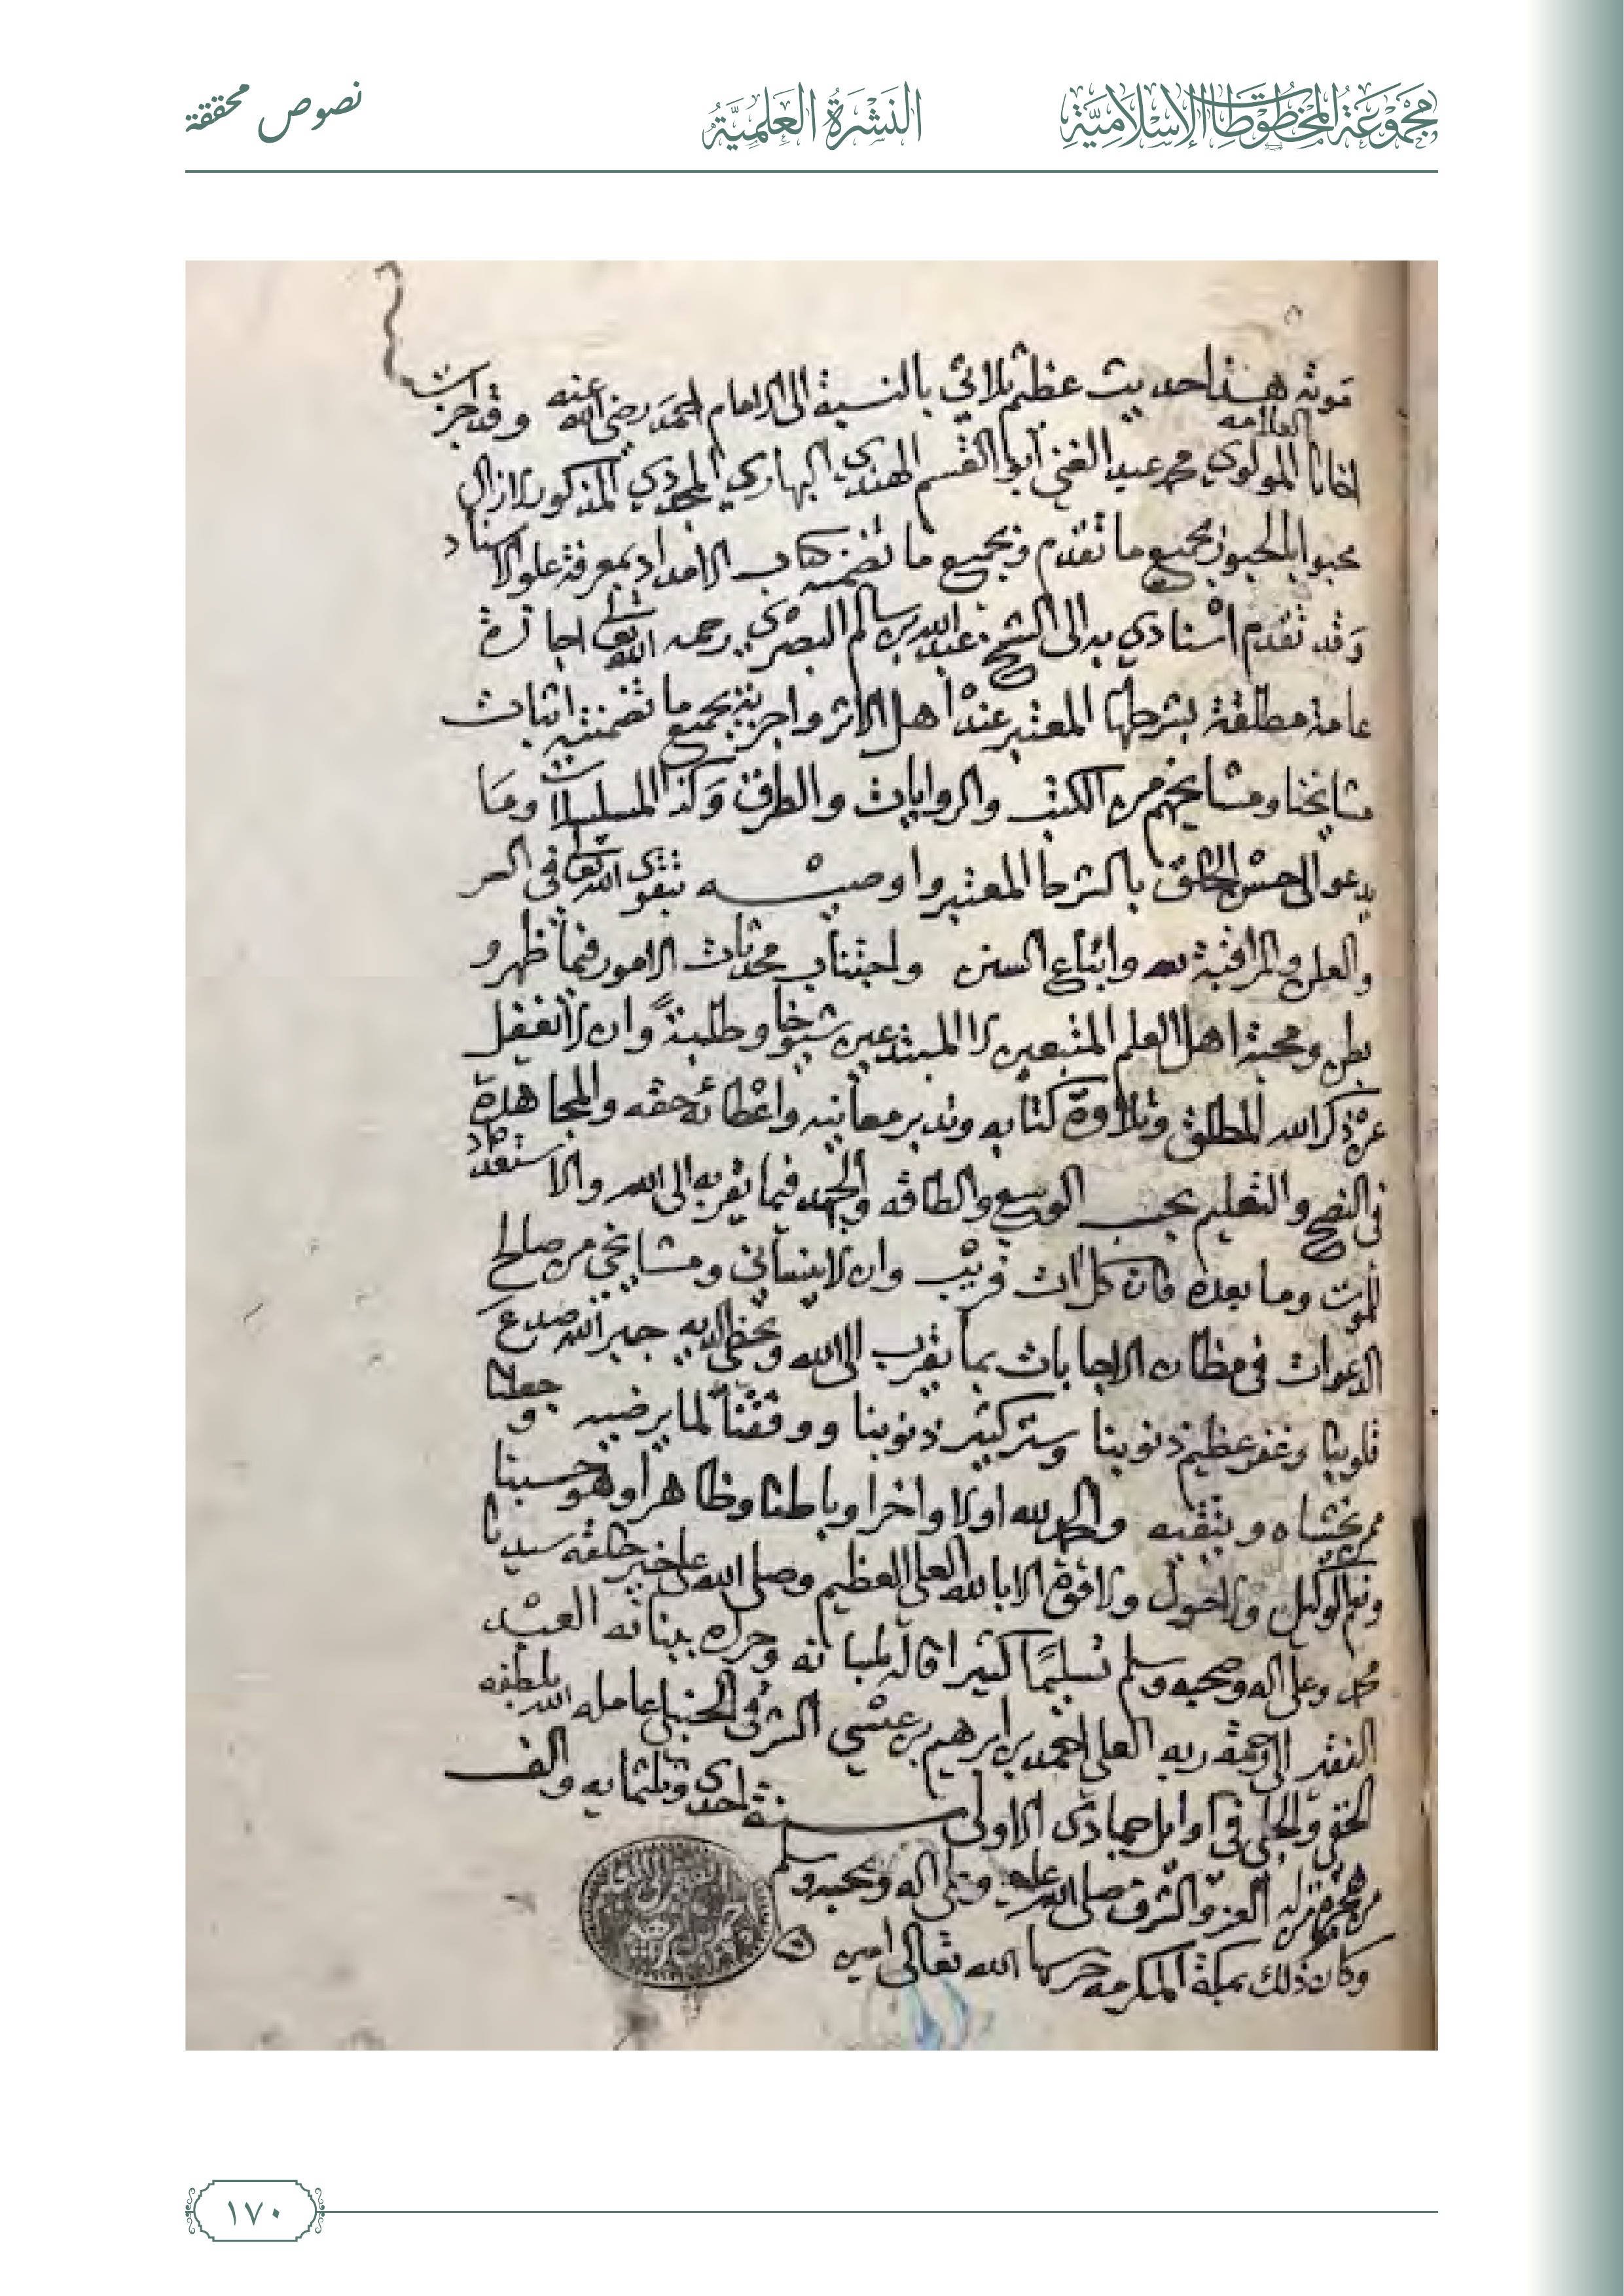 مجموعة المخطوطات الإسلامية
النشرة العلمية
نصوص محققة
موته هذا حديث عظيم ثلاثي بالنسبة الى الامام احمد رضي الله عنه وقد اجزت
اخانا العلامه المولوي محمد عبد الغني ابو القسم الهندي البهاري المذكور لازال
محبوا بالحبور بجميع ما تقدم وبجميع ما تضمنه كتاب الامداد بمعرفة علو الاسناد
وقد تقدم اسنادي به الى الشيخ عبد الله بن سالم البصري رحمه الله تعالى اجازة
عامة مطلقة بشرطها المعتبر عند اهل الاثر واجزته بجميع ما تضمنته اثبات
مشايخنا ومشايخهم من الكتب والروايات والطرق وكذا المسلسلات وما
يدعو الى حسن الخلق بالشرط المعتبر واوصيه بتقوى الله تعالى في السر
والعلن والمراقبة لله واتباع السنن واجتناب محدثات الامور فيما ظهر و
بطن ومحبة اهل العلم المتبعين لا المبتدعين شيوخا وطلبة وان لا تغفل
عن ذكر الله المطلق وتلاوة كتابه وتدبر معانيه واعطائه حقه والمجاهدة
في النصح والتعليم بحسب الوسع والطاقه والجهد فيما يقربه الى الله والاستعداد
للموت وما بعده فان كل ات قريب وان لا ينساني ومشايخي من صالح
الدعوات في مظان الاجابات بما يقرب الى الله ويحظى لديه جبر الله صدع
قلوبنا وغفر عظيم ذنوبنا وستر كثير ذنوبنا ووفقنا لما يرضيه وجعلنا
ممن يخشاه ويتقيه والحمد لله اولا واخرا وباطنا وظاهرا وهو حسبنا
ونعم الوكيل ولا حول ولا قوة الا بالله العلي العظيم وصلى الله على خير خلقه سيدنا
محمد وعلى اله وصحبه وسلم تسليما كثيرا قاله بلسانه وحرره ببنانه العبد
الفقير الى رحمة ربه العلي احمد بن ابرهيم بن عيسى الشرقي الحنبلي عامله الله بلطفه
الخفي والجلي في اوايل جمادى الاولى سنة احدى وثلثمايه والف
من هجرة من له العز والشرف صلى الله عليه وعلى اله وصحبه وسلم
وكان ذلك بمكة المكرمه حرسها الله تعالى امين
١٧٠